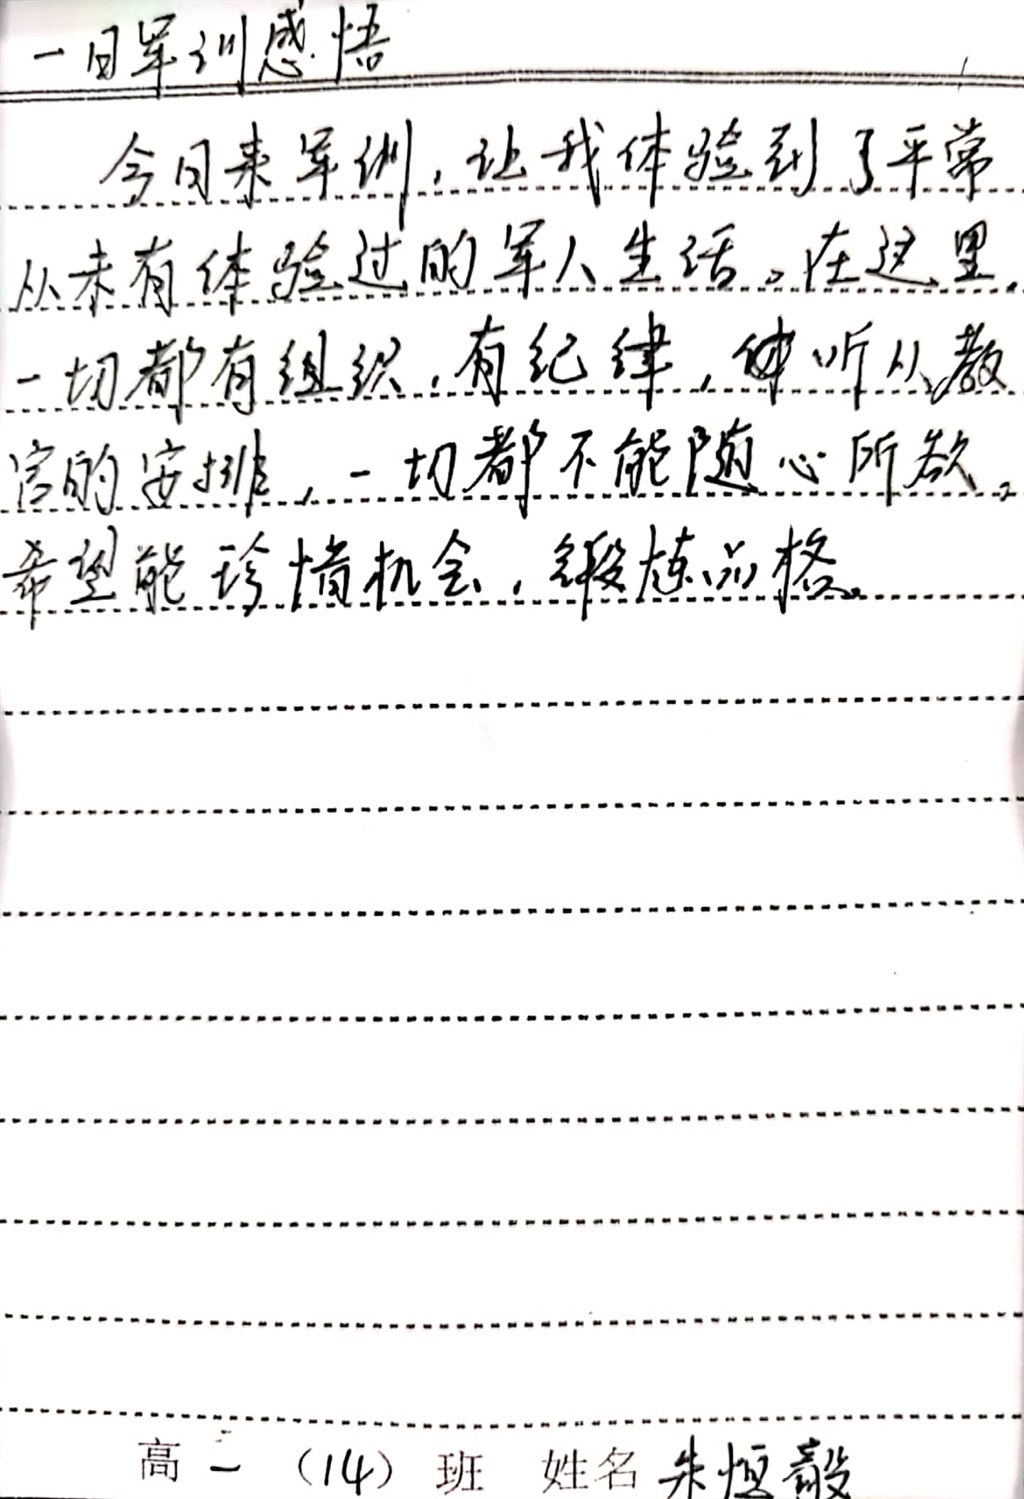 一日军训感悟
今日来军训，让我体验到了平常
从未有体验过的军人生活。在这里，
一切都有组织，有纪律，听从教
官的安排，一切都不能随心所欲。
希望能珍惜机会，锻炼品格。
高一（14）班 姓名 朱恒毅